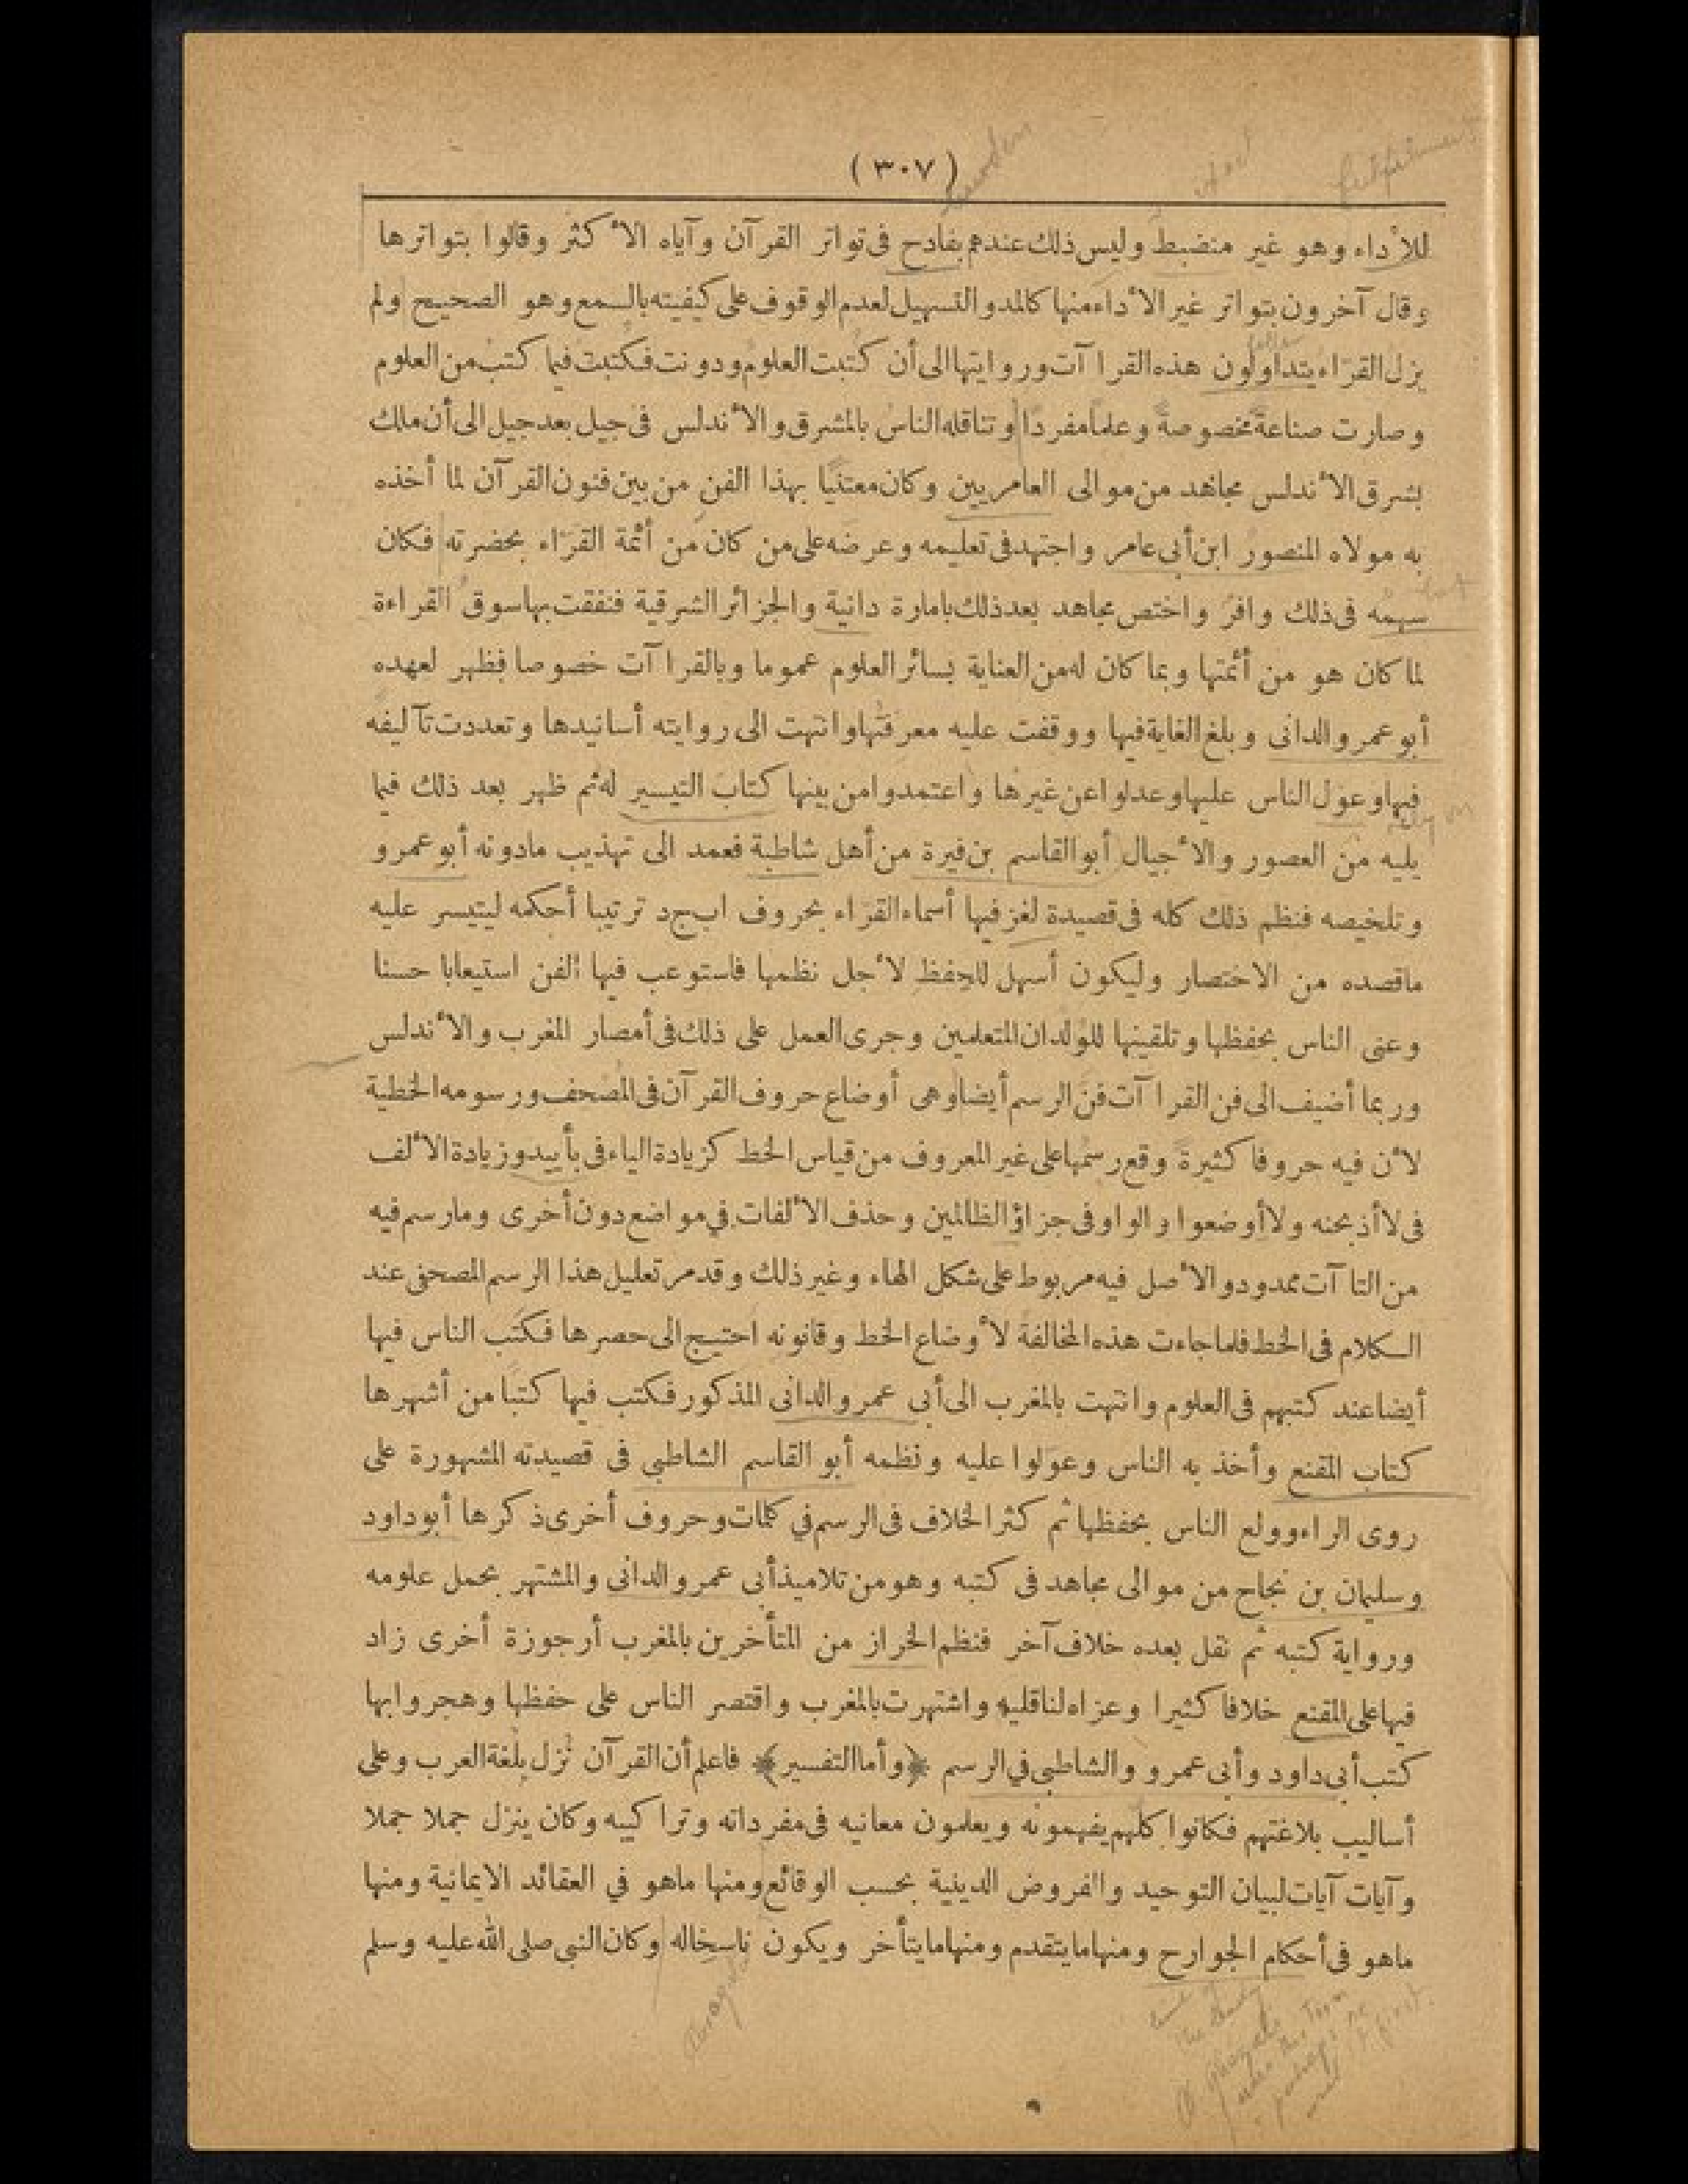 (٣٠٧)
للأداء وهو غير منضبط وليس ذلك عندهم بقادح فى تواتر القرآن وآياه الأكثر وقالوا بتواترها
وقال آخرون بتواتر غير الأداء منها كالمد والتسهيل لعدم الوقوف على كيفيته بالسمع وهو الصحيح ولم
يزل القرّاء يتداولون هذه القراآت وروايتها الى أن كُتبت العلوم ودونت فكتبت فيما كتب من العلوم
وصارت صناعةً مخصوصةً وعلمًا مفردًا وتناقله الناس بالمشرق والأندلس فى جيل بعد جيل الى أن ملك
بشرق الأندلس مجاهد من موالى العامريين وكان معتنيًا بهذا الفن من بين فنون القرآن لما أخذه
به مولاه المنصور ابن أبى عامر واجتهد فى تعليمه وعرضَه على من كان من أئمة القرّاء بحضرته فكان
سهمُه فى ذلك وافرٌ واختص مجاهد بعد ذلك بامارة دانية والجزائر الشرقية فنفقت بها سوق القراءة
لما كان هو من أئمتها وبما كان له من العناية بسائر العلوم عموما وبالقراآت خصوصا فظهر لعهده
أبو عمرو الدانى وبلغ الغاية فيها ووقفت عليه معرفتُها وانتهت الى روايته أسانيدها وتعددت تآليفه
فيها وعوّل الناس عليها وعدلوا عن غيرها واعتمدوا من بينها كتاب التيسير له ثم ظهر بعد ذلك فيما
يليه من العصور والأجيال أبو القاسم بن فيرة من أهل شاطبة فعمد الى تهذيب مادونه أبو عمرو
وتلخيصه فنظم ذلك كله فى قصيدة لغز فيها أسماء القرّاء بحروف اب ج د ترتيبا أحكمه ليتيسر عليه
ماقصده من الاختصار وليكون أسهل للحفظ لأجل نظمها فاستوعب فيها الفن استيعابا حسنا
وعنى الناس بحفظها وتلقينها للولدان المتعلمين وجرى العمل على ذلك فى أمصار المغرب والأندلس
وربما أضيف الى فن القراآت فنّ الرسم أيضا وهى أوضاع حروف القرآن فى المصحف ورسومه الخطية
لأن فيه حروفا كثيرة وقع رسمُها على غير المعروف من قياس الخط كزيادة الياء فى بأييد وزيادة الألف
فى لاأذبحنه ولاأوضعوا والواو فى جزاؤ الظالمين وحذف الألفات في مواضع دون أخرى ومارسم فيه
من التاآت ممدودو الأصل فيه مربوط على شكل الهاء وغير ذلك وقد مر تعليل هذا الرسم المصحفى عند
الكلام فى الخط فلما جاءت هذه المخالفة لأوضاع الخط وقانونه احتيج الى حصرها فكتَب الناس فيها
أيضا عند كتبهم فى العلوم وانتهت بالمغرب الى أبى عمرو الدانى المذكور فكتب فيها كتبًا من أشهرها
كتاب المقنع وأخذ به الناس وعوّلوا عليه ونظمه أبو القاسم الشاطبى فى قصيدته المشهورة على
روى الراء وولع الناس بحفظها ثم كثر الخلاف فى الرسم في كلمات وحروف أخرى ذكرها أبو داود
وسليمان بن نجاح من موالى مجاهد فى كتبه وهو من تلاميذ أبى عمرو الدانى والمشتهر بحمل علومه
ورواية كتبه ثم نقل بعده خلاف آخر فنظم الخراز من المتأخرين بالمغرب أرجوزة أخرى زاد
فيها على المقنع خلافا كثيرا وعزاه لناقليه واشتهرت بالمغرب واقتصر الناس على حفظها وهجروا بها
كتب أبى داود وأبى عمرو والشاطبى في الرسم ﴿وأما التفسير﴾ فاعلم أن القرآن نُزل بلُغة العرب وعلى
أساليب بلاغتهم فكانوا كلهم يفهمونه ويعلمون معانيه فى مفرداته وتراكيبه وكان ينزل جملا جملا
وآيات آيات لبيان التوحيد والفروض الدينية بحسب الوقائع ومنها ماهو في العقائد الايمانية ومنها
ماهو فى أحكام الجوارح ومنها مايتقدم ومنها مايتأخر ويكون ناسخاله وكان النبى صلى الله عليه وسلم